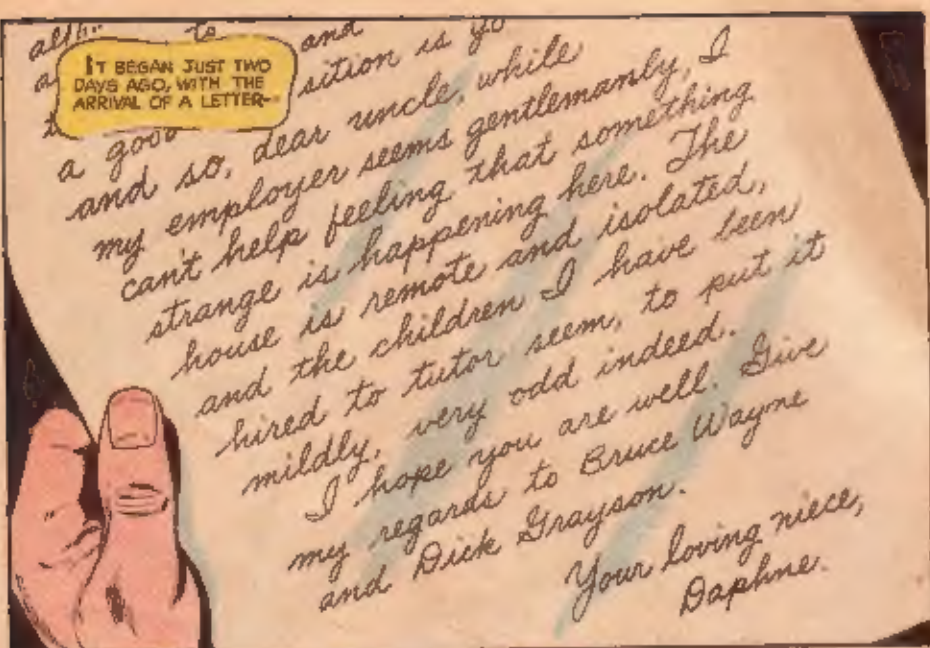 IT BEGAN JUST TWO
DAYS AGO, WITH THE
ARRIVAL OF A LETTER--
to and
a good sition is yo
and so, dear uncle, while
my employer seems gentlemanly, I
can't help feeling that something
strange is happening here. The
house is remote and isolated,
and the children I have been
hired to tutor seem, to put it
mildly, very odd indeed.
I hope you are well. Give
my regards to Bruce Wayne
and Dick Grayson.
Your loving niece,
Daphne.